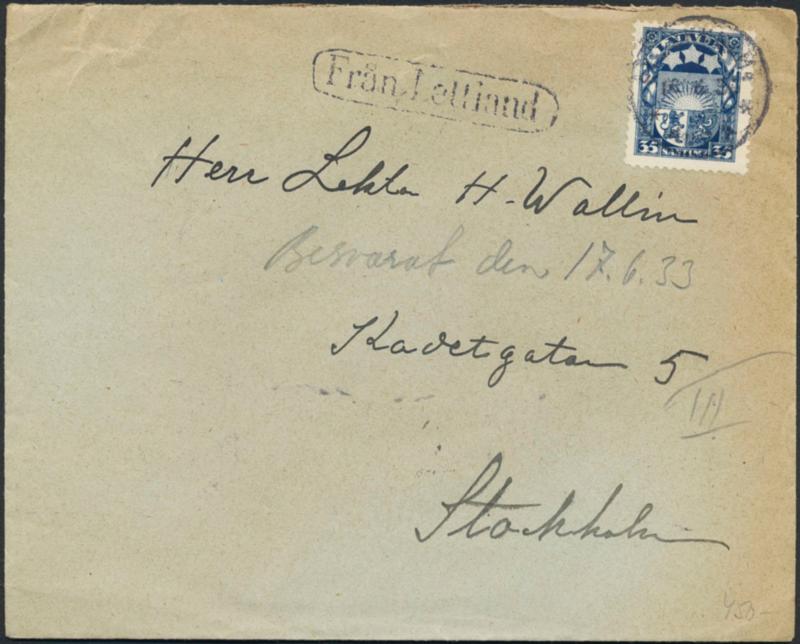 Från Lettland
LATVIJA
35 SANTIMU 35
Herr Lektor H. Wallin
Besvarat den 17.6.33
Kadetsgatan 5
III
Stockholm
450-